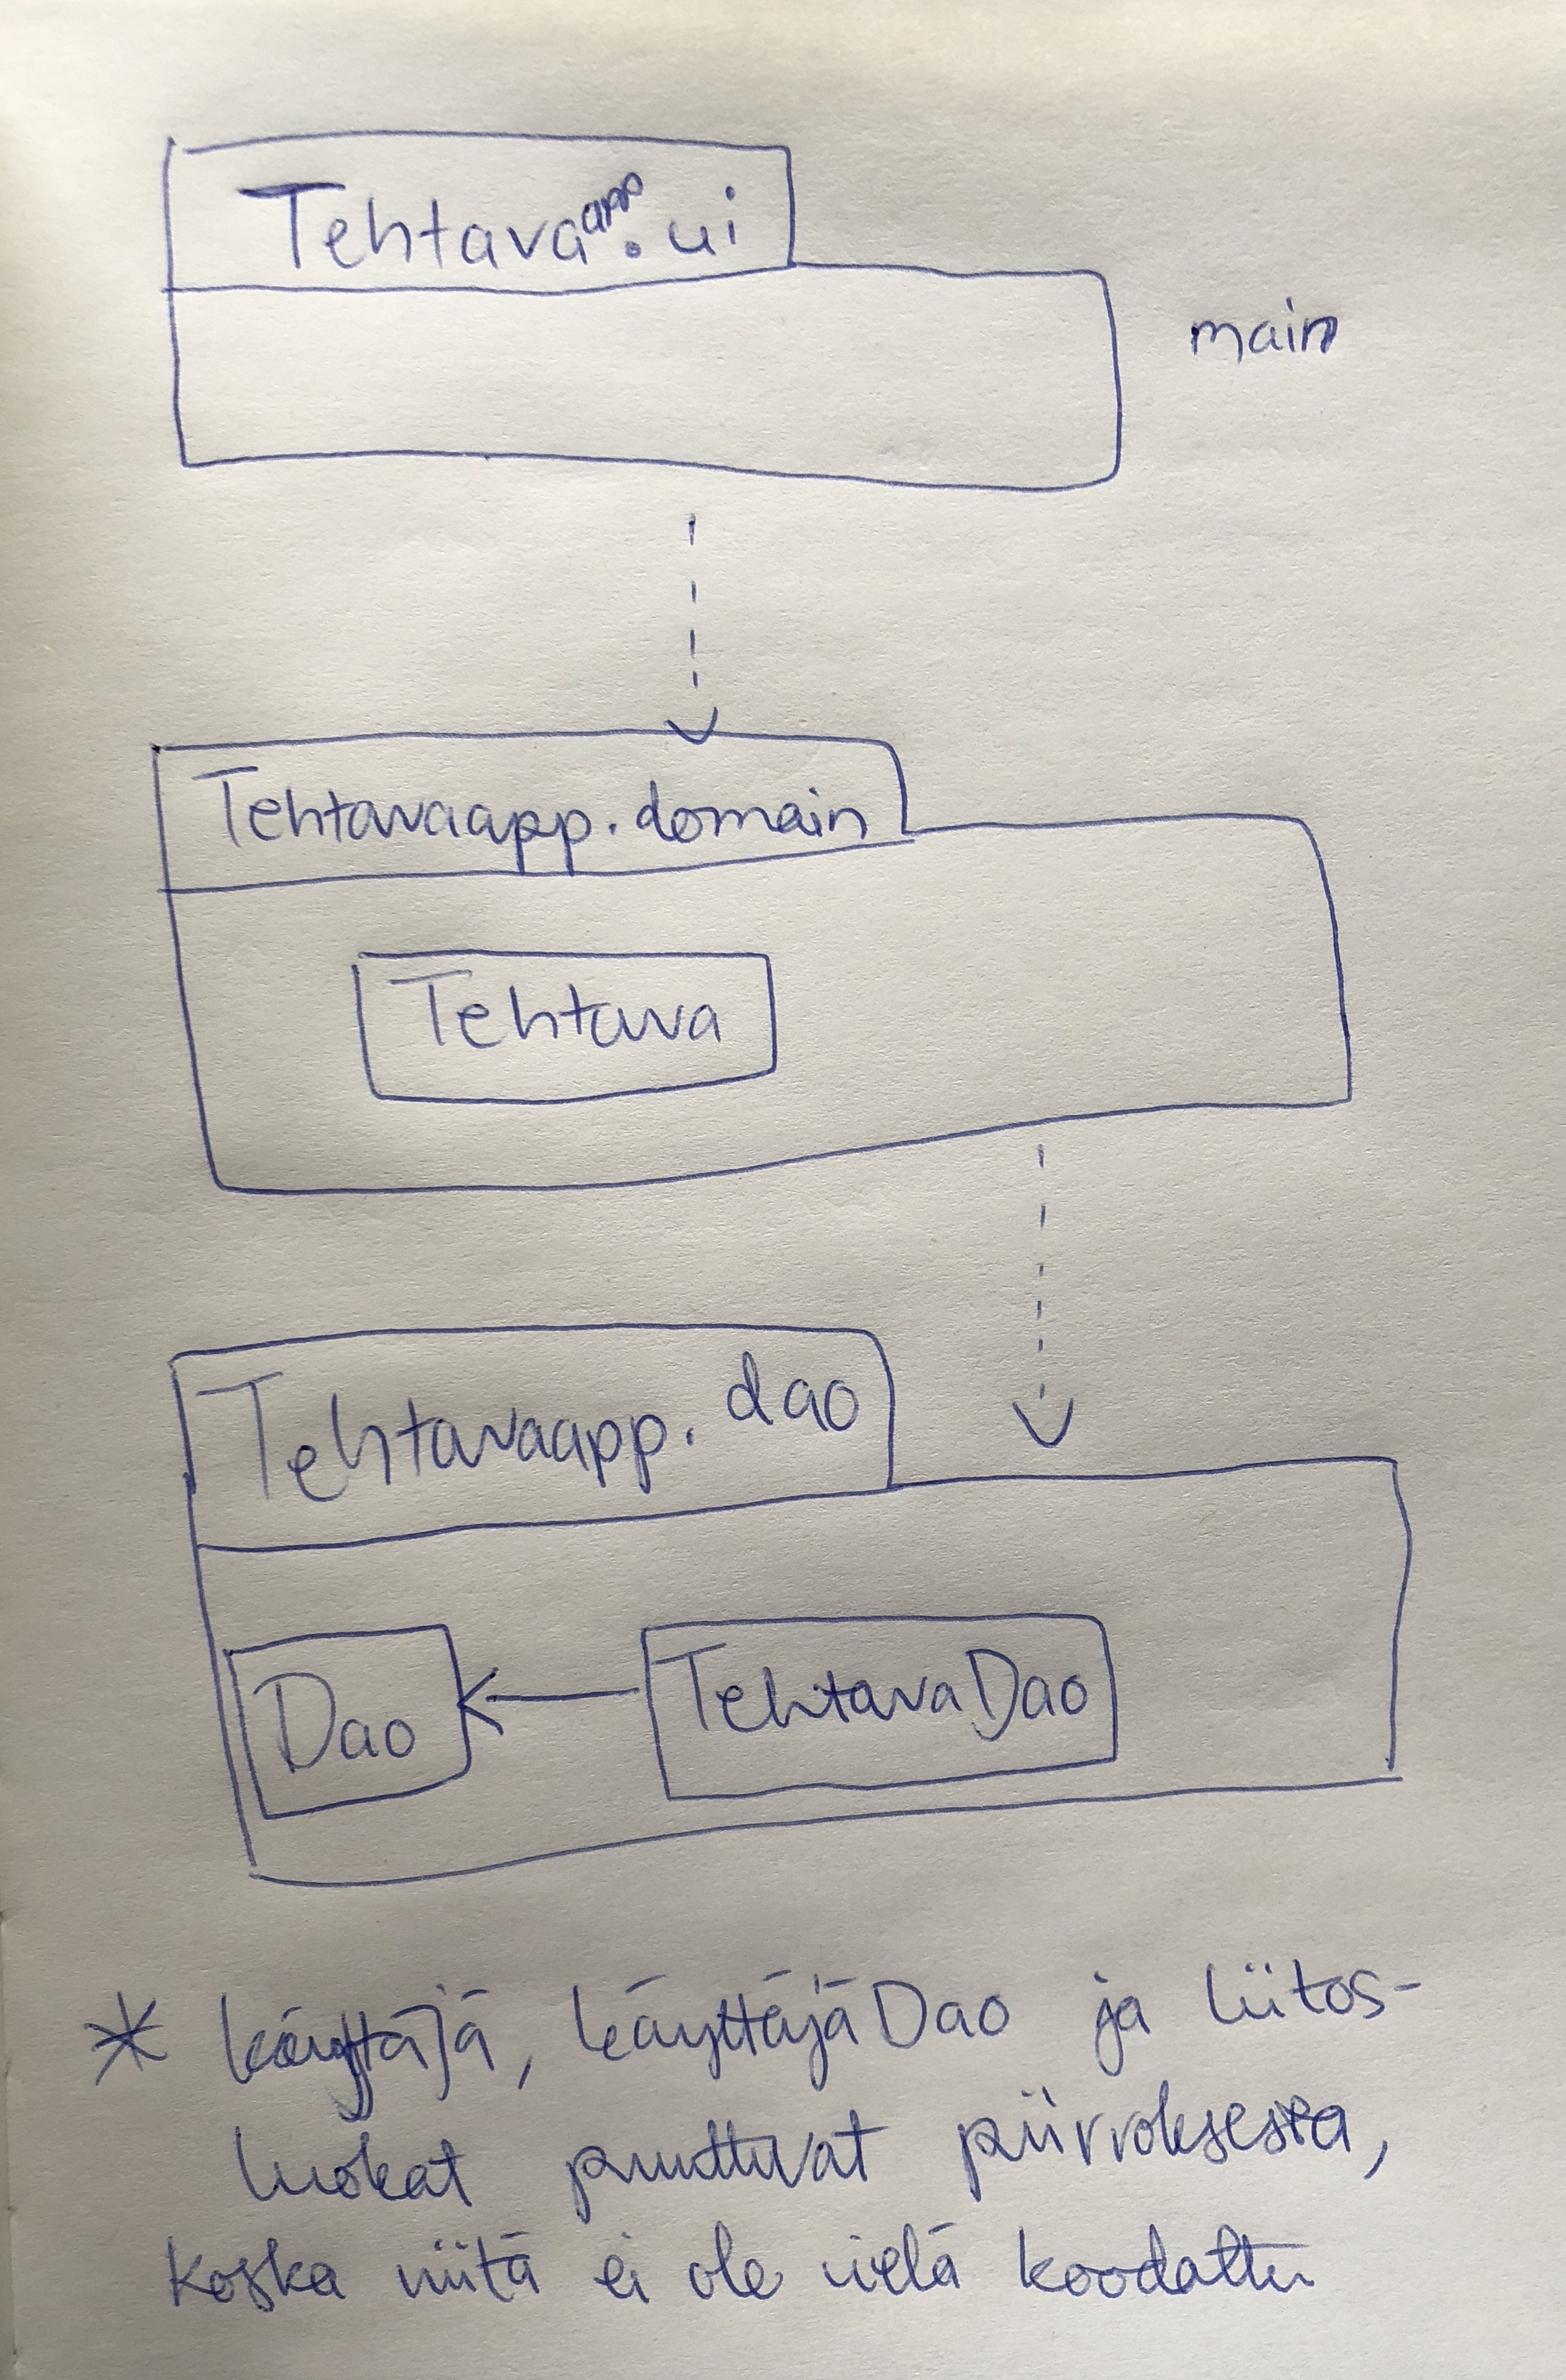 Tehtavaapp.ui
main
Tehtavaapp.domain
Tehtava
Tehtavaapp.dao
Dao
TehtavaDao
* käyttäjä, käyttäjäDao ja liitos-
luokat puuttuvat piirroksesta,
koska niitä ei ole vielä koodattu